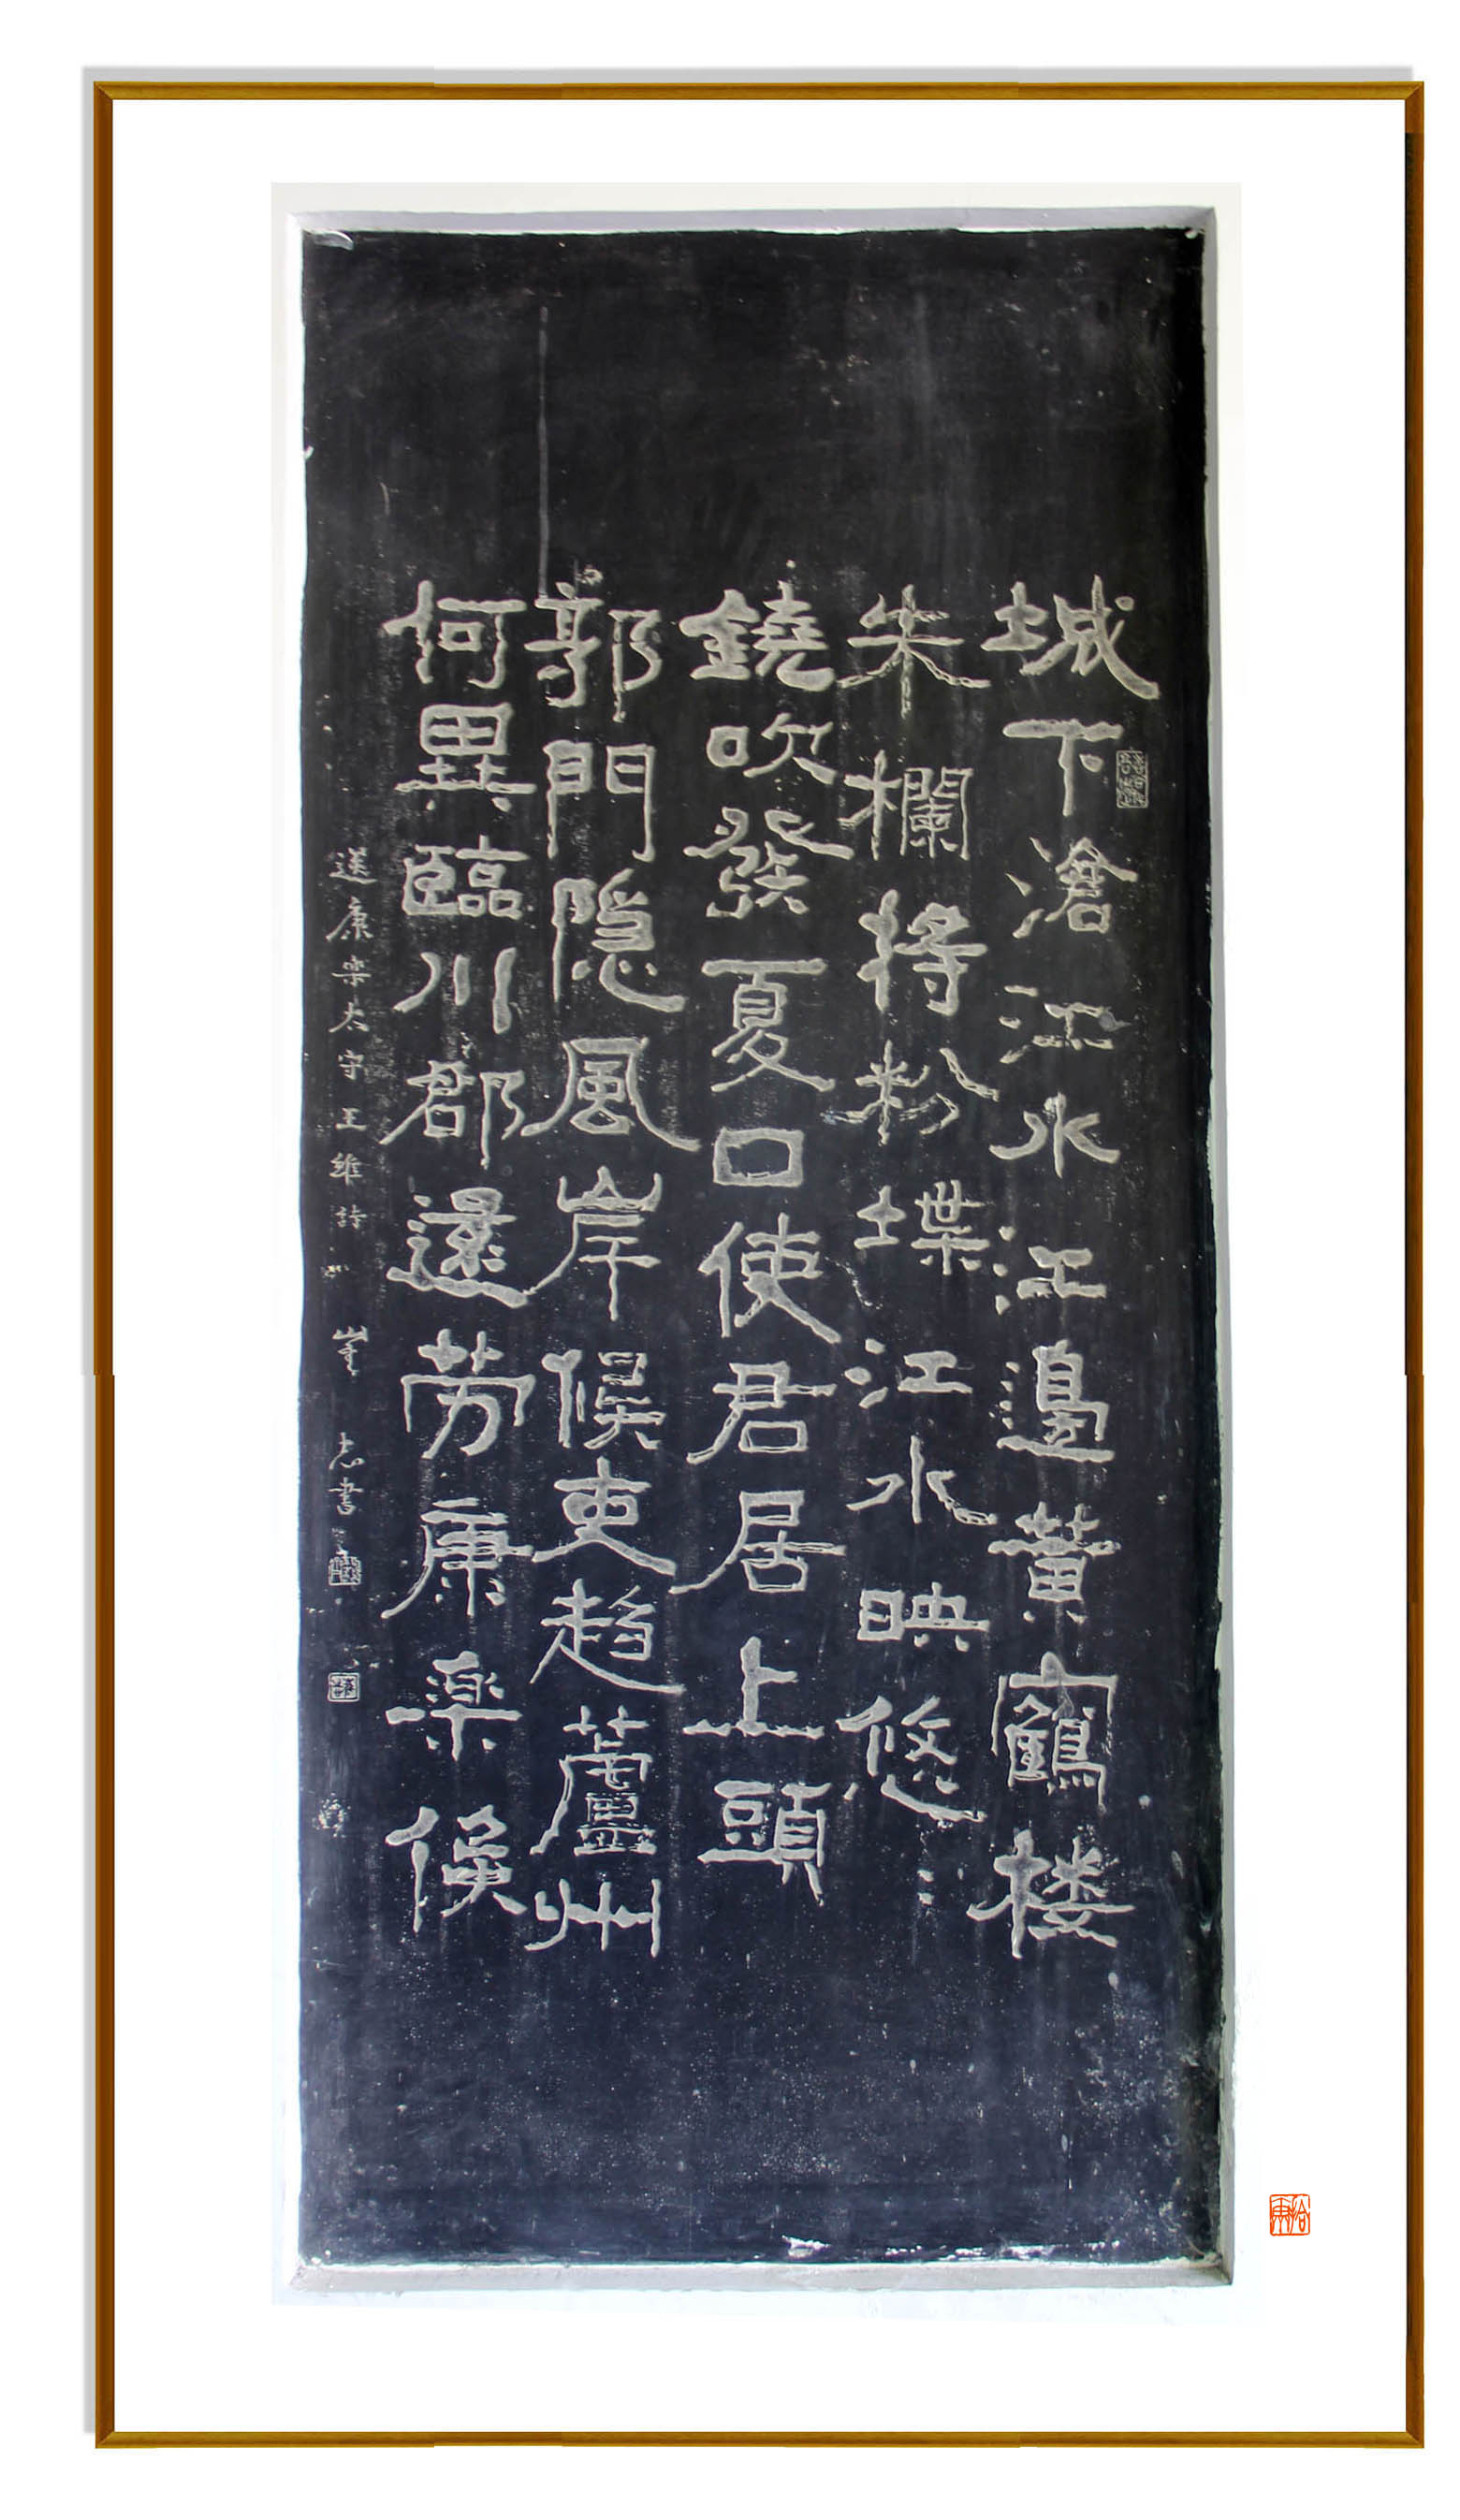 城下滄江水江邊黃鶴楼
朱欄將粉堞江水映悠〻
鐃吹發夏口使君居上頭
郭門隐風岸候吏趋蘆州
何異臨川郡還劳康楽侯
送康楽太守王維詩 志書